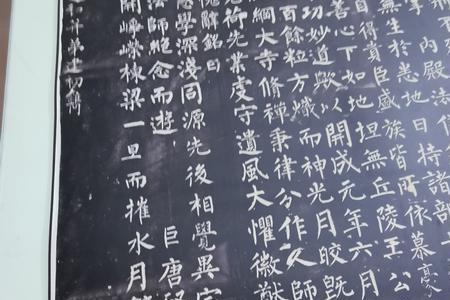 内殿法
無生於悉地日持諸部十
自得貴臣盛族皆所依慕豪
善心下如地坦無丘陵王公
功妙道歟以開成元年六月
百餘粒方熾而神光月皎既
綱大寺脩禪秉律分作人師
荷先業虔守遺風大懼徽猷
愧辭銘曰 巨唐啓
學深淺同源先後相覺異宗
法師絕念而遊
開崢嶸棟梁一旦而摧水月
并弟建初鐫